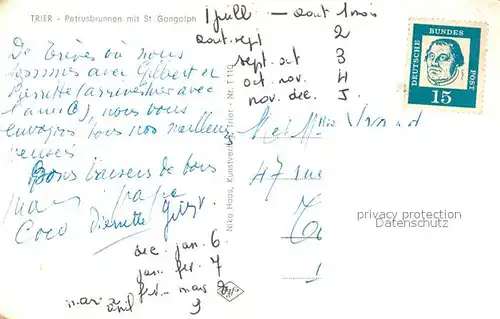 TRIER - Petrusbrunnen mit St. Gangolph
1 juill — aout 1 mois
aout. sept 2
sept. oct 3
oct. nov. 4
nov. dec. 5.
DEUTSCHE BUNDES POST
15
De Trèves où nous
sommes avec Gilbert et
Pierrette (arrivés hier avec
l'ami C), nous vous
envoyons tous nos meilleurs
pensées
Bons baisers de tous
papa
Coco Pierrette Gilbert
Niko Haas, Kunstverlag, Trier - Nr. T 110
Mr et Mme
47 rue
privacy protection
Datenschutz
dec. jan. 6.
jan. fev. 7
fev. mars 8
mars avril 9